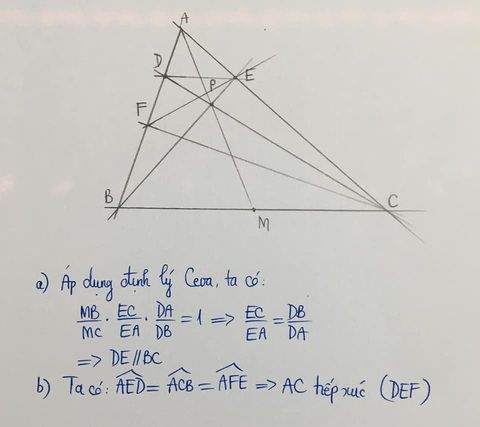 A
D
E
P
F
B
C
M
a) Áp dụng định lý Ceva, ta có:
MB/MC . EC/EA . DA/DB = 1 => EC/EA = DB/DA
=> DE // BC
b) Ta có: \widehat{AED} = \widehat{ACB} = \widehat{AFE} => AC tiếp xúc (DEF)